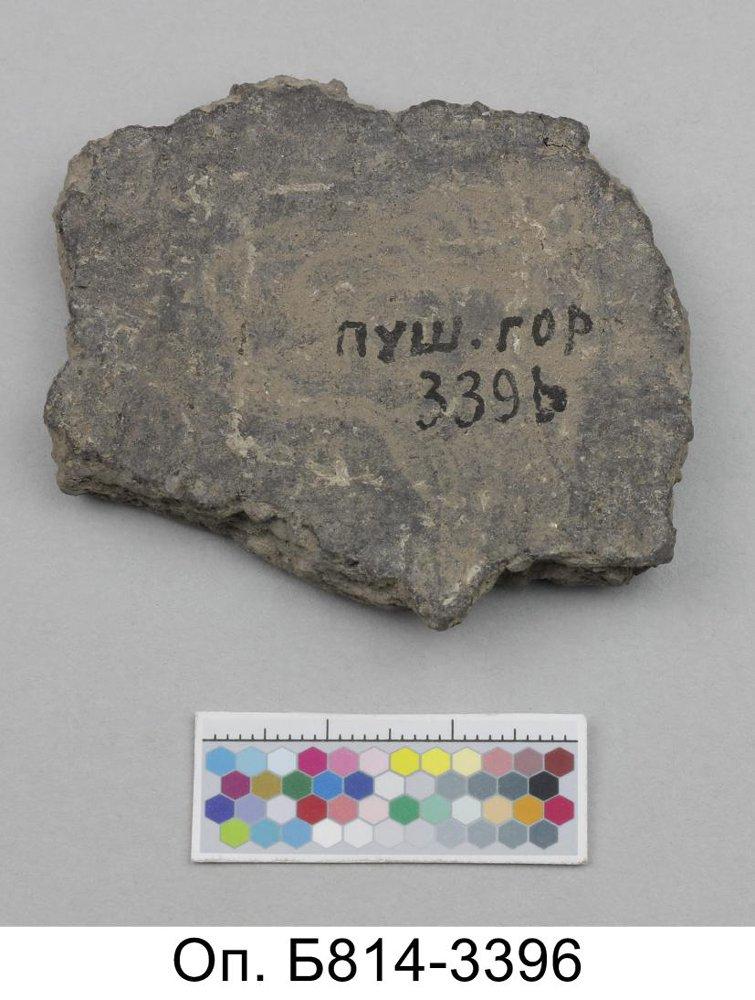 ПУШ. ГОР
3396
Оп. Б814-3396